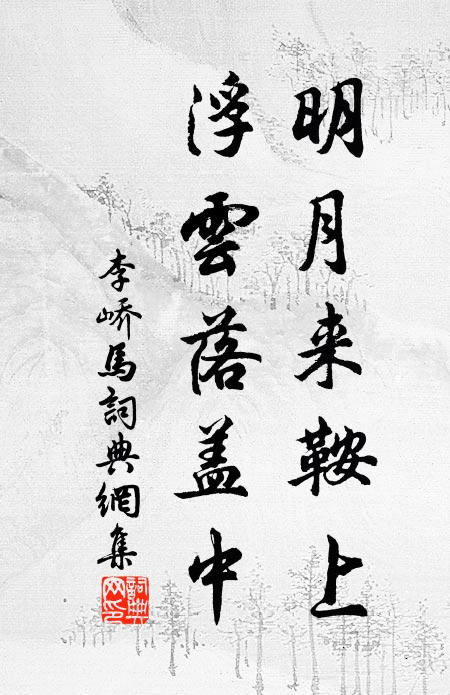 明月来鞍上
浮雲落盖中
李嶠馬詞典網集
詞典网印